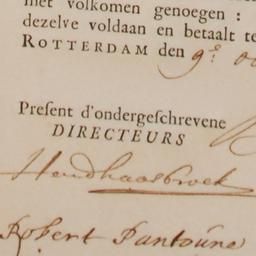 met volkomen genoegen :
dezelve voldaan en betaalt te
ROTTERDAM den 9e
Present d'ondergeschrevene
DIRECTEURS
Robert Pantoúne